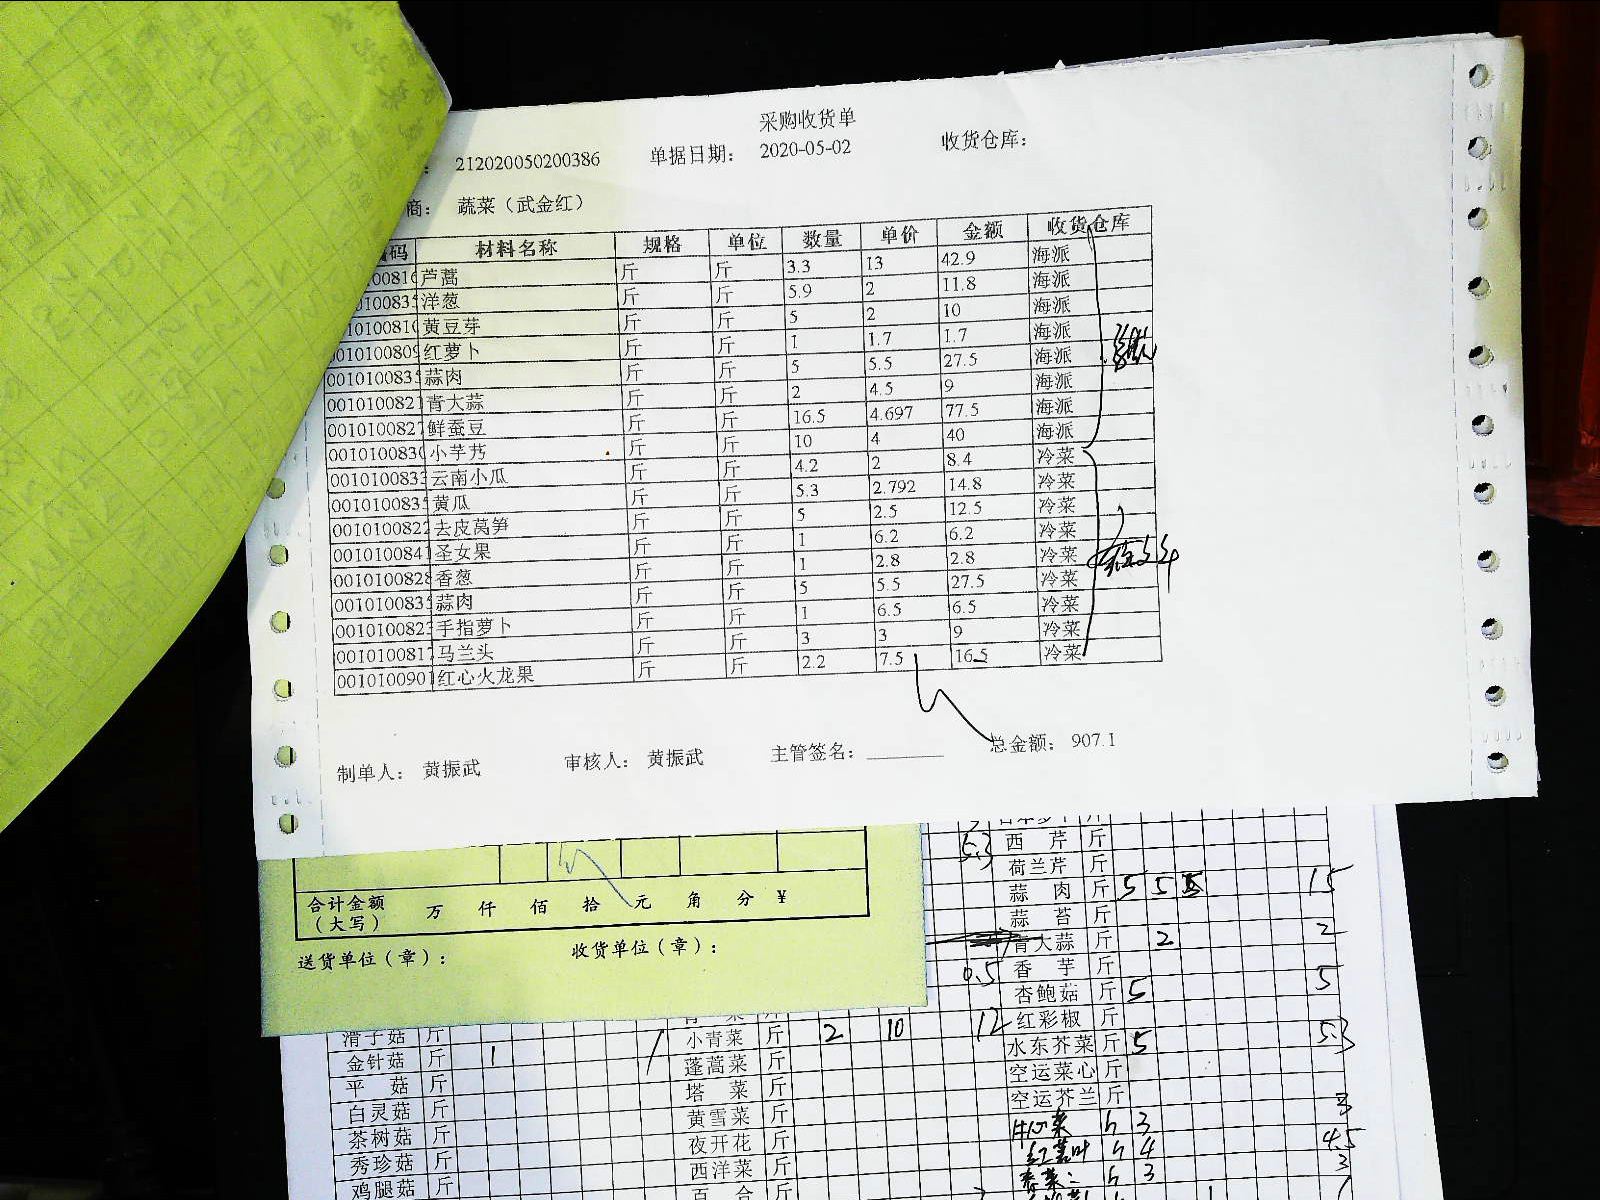 采购收货单
： 212020050200386 单据日期： 2020-05-02 收货仓库：
商： 蔬菜（武金红）
码 材料名称 规格 单位 数量 单价 金额 收货仓库
00816 芦蒿 斤 斤 3.3 13 42.9 海派
0100835 洋葱 斤 斤 5.9 2 11.8 海派
10100810 黄豆芽 斤 斤 5 2 10 海派
0010100809 红萝卜 斤 斤 1 1.7 1.7 海派
0010100835 蒜肉 斤 斤 5 5.5 27.5 海派
0010100821 青大蒜 斤 斤 2 4.5 9 海派
0010100827 鲜蚕豆 斤 斤 16.5 4.697 77.5 海派
0010100830 小芋艿 斤 斤 10 4 40 海派
0010100833 云南小瓜 斤 斤 4.2 2 8.4 冷菜
0010100835 黄瓜 斤 斤 5.3 2.792 14.8 冷菜
0010100822 去皮莴笋 斤 斤 5 2.5 12.5 冷菜
0010100841 圣女果 斤 斤 1 6.2 6.2 冷菜
0010100828 香葱 斤 斤 1 2.8 2.8 冷菜
0010100835 蒜肉 斤 斤 5 5.5 27.5 冷菜
0010100823 手指萝卜 斤 斤 1 6.5 6.5 冷菜
0010100817 马兰头 斤 斤 3 3 9 冷菜
0010100901 红心火龙果 斤 斤 2.2 7.5 16.5 冷菜
制单人： 黄振武 审核人： 黄振武 主管签名： 总金额： 907.1
合计金额（大写） 万 仟 佰 拾 元 角 分 ¥
送货单位（章）： 收货单位（章）：
5.3 西芹 斤
荷兰芹 斤
蒜肉 斤 5 5 5 15
蒜苔 斤
青大蒜 斤 2 2
0.5 香芋 斤
杏鲍菇 斤 5 5
滑子菇 斤 小青菜 斤 2 10 12 红彩椒 斤
金针菇 斤 1 1 蓬蒿菜 斤 水东芥菜 斤 5 5.3
平菇 斤 塔菜 斤 空运菜心 斤
白灵菇 斤 黄雪菜 斤 空运芥兰 斤
茶树菇 斤 夜开花 斤 3 3
秀珍菇 斤 西洋菜 斤 4 4.5
鸡腿菇 斤 百合 斤 3 3